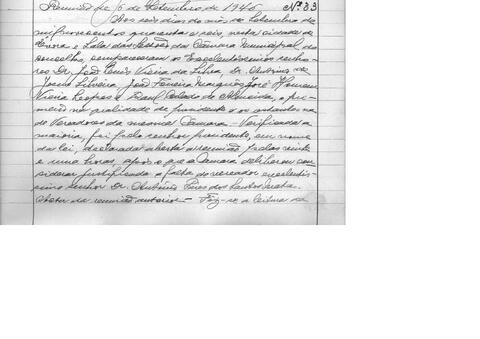 Reunião de 6 de Setembro de 1946 Nº 23
Aos seis dias do mês de Setembro de
mil novecentos quarenta e seis, nesta cidade de
Évora e Sala das Sessões da Câmara Municipal do
concelho, compareceram os Excelentíssimos senho-
res Dr. João Luís Vieira da Silva, Dr. António de
Silveira, João Ferreira Marques, José Homem
Vieira e Raul de Almeida, o pri-
meiro na qualidade de presidente e os restantes na
de Vereadores da mesma Câmara - Verificada a
maioria, foi pelo senhor presidente, em nome
da lei, declarada aberta a reunião pelas vinte
e uma horas, após o que a Câmara deliberou con-
siderar justificada a falta do vereador excelentís-
simo senhor Dr. António Pires dos Santos
Acta da reunião anterior - Fez-se a leitura da